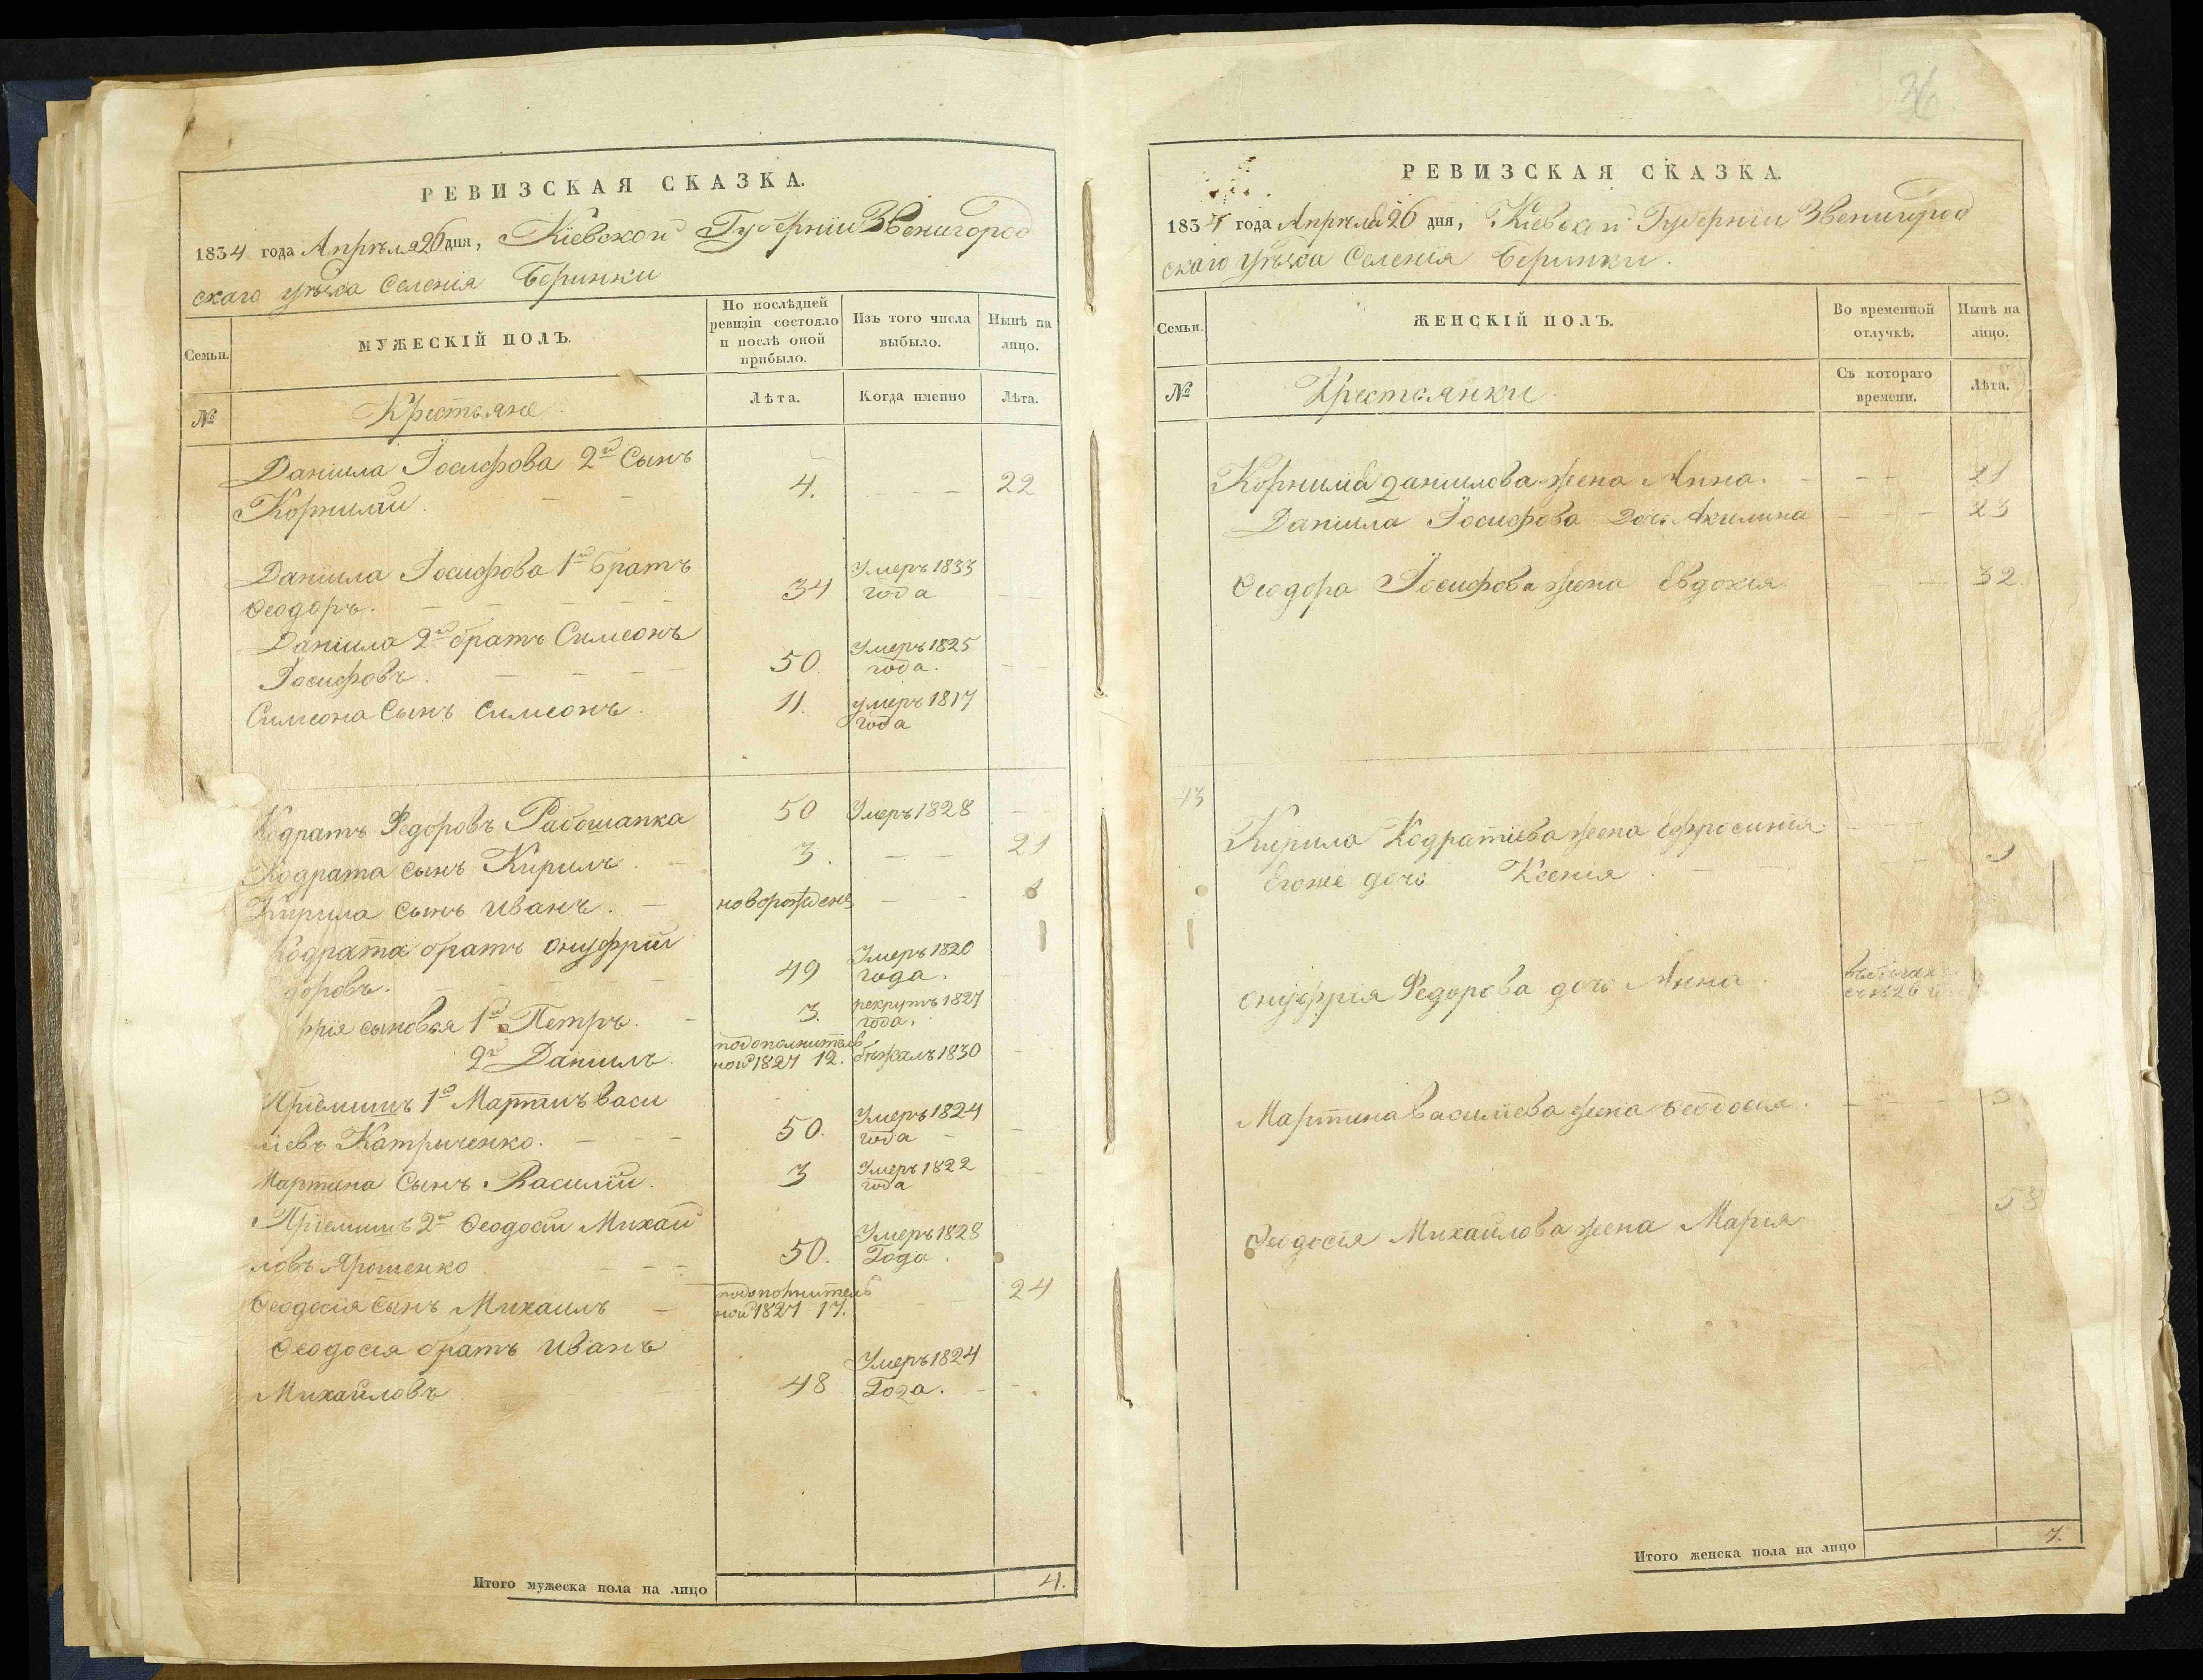 РЕВИЗСКАЯ СКАЗКА.
1834 года Апрѣля 26 дня, Кіевской Губерніи Звенигород
скаго уѣзда Селенія Беринки
Семьи.
МУЖЕСКІЙ ПОЛЪ.
По послѣдней ревизіи состояло и послѣ оной прибыло.
Изъ того числа выбыло.
Нынѣ на лицо.
№
Крестьяне.
Лѣта.
Когда именно
Лѣта.
Даніила Іосифова 2й Сынъ
Корнилій. 4. 22
Даніила Іосифова 1й братъ
Ѳеодоръ. 34 Умеръ 1833 года
Даніила 2й братъ Симеонъ
Іосифовъ. 50. Умеръ 1825 года.
Симеона Сынъ Симеонъ. 11. умеръ 1817 года
Кодратъ Федоровъ Рабошапка 50 Умеръ 1828
Кодрата сынъ Кирилъ. 3. 21
Кирила сынъ Иванъ. новорожденъ
Кодрата братъ Онуфрій
доровъ. 49 Умеръ 1820 года.
фрія сыновья 1й Петръ. 3. рекрутъ 1827 года.
2й Даніилъ. подополнитель
ной 1827 12. бѣжалъ 1830
Пріемишъ 1й Мартинъ Васи
ліевъ Катриченко. 50. Умеръ 1824 года
Мартина Сынъ Василій. 3 Умеръ 1822 года
Пріемишъ 2й Ѳеодосій Михай
ловъ Ярошенко 50. Умеръ 1828 Года.
Ѳеодосія Сынъ Михаилъ подополнитель
ной 1827 17. 24
Ѳеодосія братъ Иванъ
Михайловъ 48 Умеръ 1824 Года.
Итого мужеска пола на лицо 4.
36
РЕВИЗСКАЯ СКАЗКА.
1834 года Апрѣля 26 дня, Кіевской Губерніи Звенигород
скаго уѣзда Селенія Беринки.
Семьи.
ЖЕНСКІЙ ПОЛЪ.
Во временной отлучкѣ.
Нынѣ на лицо.
№
Крестьянки.
Съ котораго времени.
Лѣта.
Корнилія Даніилова жена Анна. 21
Даніила Іосифова дочь Акилина 23
Ѳеодора Іосифова жена Евдокія 32
43
Кирила Кодратіева жена Ефросинія
Егоже дочь Ксенія.
Онуфрія Федорова дочь Анна.
съ 1826
Мартина Василіева жена Ѳеодосія.
Ѳеодосія Михайлова жена Марія 53
Итого женска пола на лицо 7.